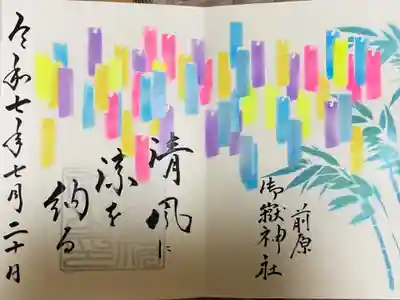 前原
御嶽神社
清風に
涼を
納る
令和七年七月二十日